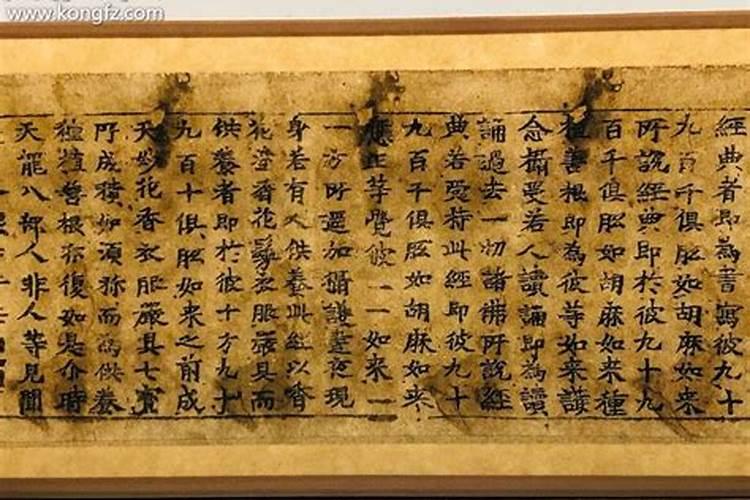 www.kongfz.com
經典者即為書寫彼九十
九百千俱胝如胡麻如来
所說經典即於彼九十九
百千俱胝如胡麻如来種
植善根即為彼等如来護
念攝受若人讀誦即為讀
誦過去一切諸佛所說經
典若受持此經即彼九十
九百千俱胝如胡麻如来
應正等覺彼一一如来一
一方所遥加攝護晝夜現
身若有人供養此經以香
花塗香花鬘衣服嚴具而
供養者即於彼十方九十
九百千俱胝如来之前成
天妙花香衣服嚴具七寶
所成積如須弥而為供養
種植善根亦復如是尒時
天龍八部人非人等見聞